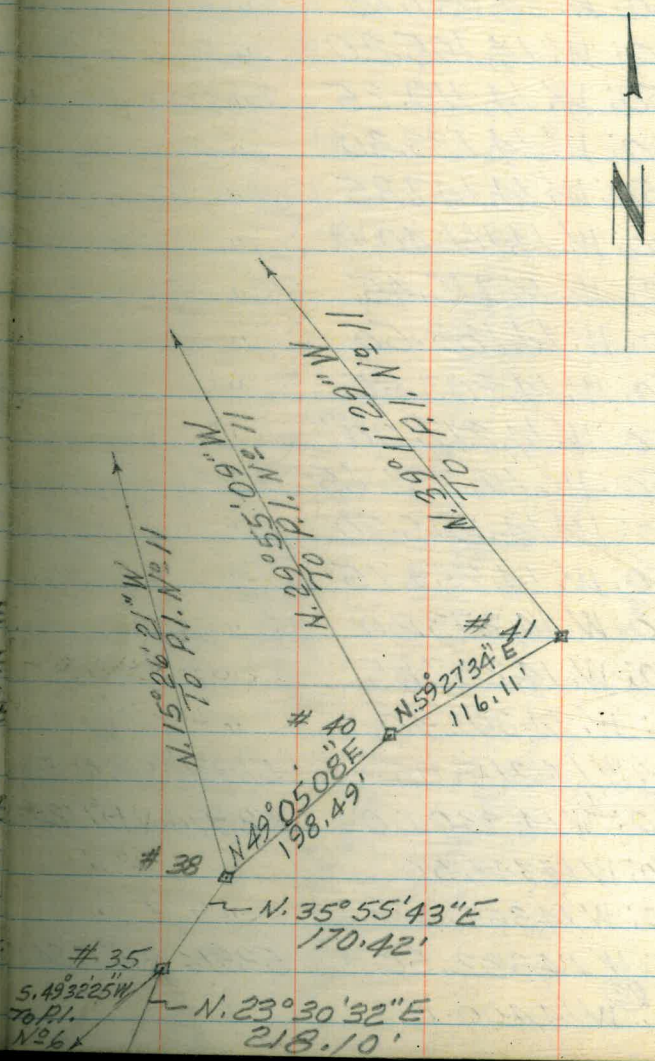 N
N. 39° 11' 29" W
To P.I. Nº 11
N. 29° 55' 09" W
To P.I. Nº 11
N. 15° 26' 21" W
To P.I. Nº 11
# 41
N. 59° 27' 34" E
116.11'
# 40
N 49° 05' 08" E
198.49'
# 38
N. 35° 55' 43" E
170.42'
# 35
S. 49° 32' 25" W
To P.I.
Nº 6
N. 23° 30' 32" E
218.10'